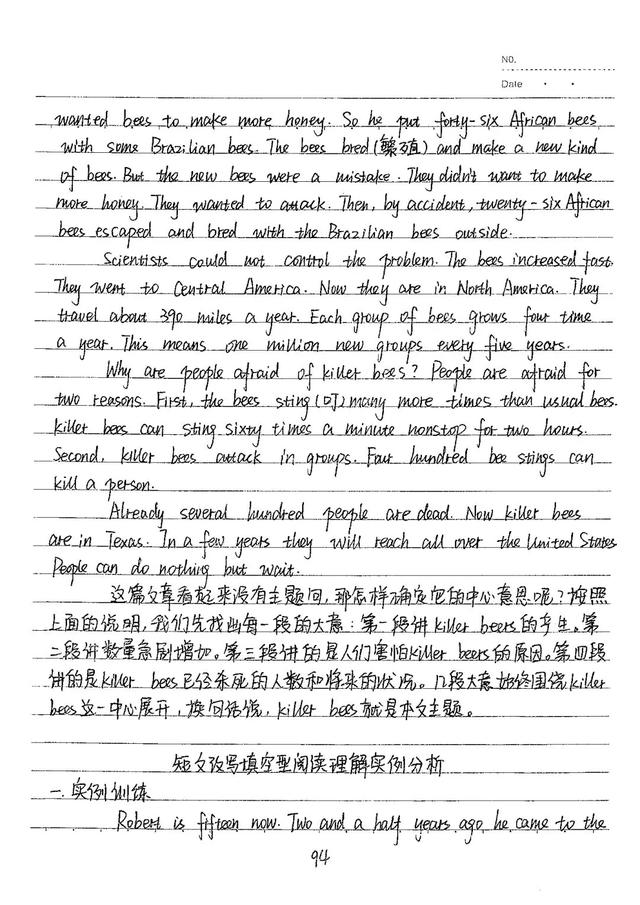 NO.
Date
wanted bees to make more honey. So he put forty-six African bees
with some Brazilian bees. The bees bred (繁殖) and make a new kind
of bees. But the new bees were a mistake. They didn't want to make
more honey. They wanted to attack. Then, by accident, twenty-six African
bees escaped and bred with the Brazilian bees outside.
Scientists could not control the problem. The bees increased fast.
They went to Central America. Now they are in North America. They
travel about 390 miles a year. Each group of bees grows four time
a year. This means one million new groups every five years.
Why are people afraid of killer bees? People are afraid for
two reasons. First, the bees sting (叮) many more times than usual bees.
killer bees can sting sixty times a minute nonstop for two hours.
Second, killer bees attack in groups. Four hundred bee stings can
kill a person.
Already several hundred people are dead. Now killer bees
are in Texas. In a few years they will reach all over the United States
People can do nothing but wait.
这篇文章看起来没有主题句,那怎样确定它的中心意思呢?按照
上面的说明,我们先找出每一段的大意:第一段讲killer beers的产生。第
二段讲数量急剧增加。第三段讲的是人们害怕killer beers的原因。第四段
讲的是killer bees已经杀死的人数和将来的状况。几段大意始终围绕killer
bees这一中心展开,换句话说,killer bees就是本文主题。
短文改写填空型阅读理解实例分析
一.实例训练
Robert is fifteen now. Two and a half years ago, he came to the
94